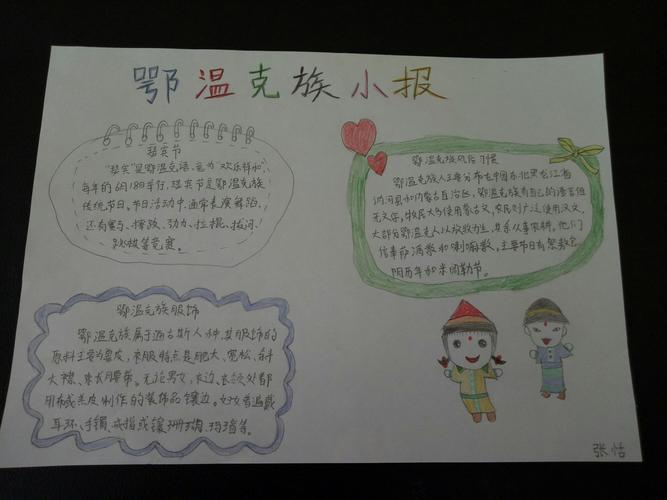 鄂温克族小报
瑟宾节
"瑟宾"是鄂温克语,意为"欢乐祥和"
每年的6月18日举行,瑟宾节是鄂温克族
传统节日。节日活动中,通常表演舞蹈,
还有赛马、摔跤、功力、拉棍、拔河、
跳放等竞赛。
鄂温克族风俗习惯
鄂温克族人主要分布在中国东北黑龙江省
讷河县和内蒙古自治区,鄂温克族有自己的语言但
无文字,牧民大多使用蒙古文,农民则广泛使用汉文。
大部分鄂温克人以放牧为生,其余从事农耕。他们
信奉萨满教和喇嘛教,主要节日有祭敖包
阴历年和米阔勒节。
鄂温克族服饰
鄂温克族属于通古斯人种,其服饰的
原料主要为兽皮,衣服特点是肥大、宽松、斜
大襟、束长腰带。无论男女,衣边、衣领处都
用布或羔皮制作的装饰品镶边。妇女普遍戴
耳环、手镯、戒指或镶珊瑚、玛瑙等。
张恬